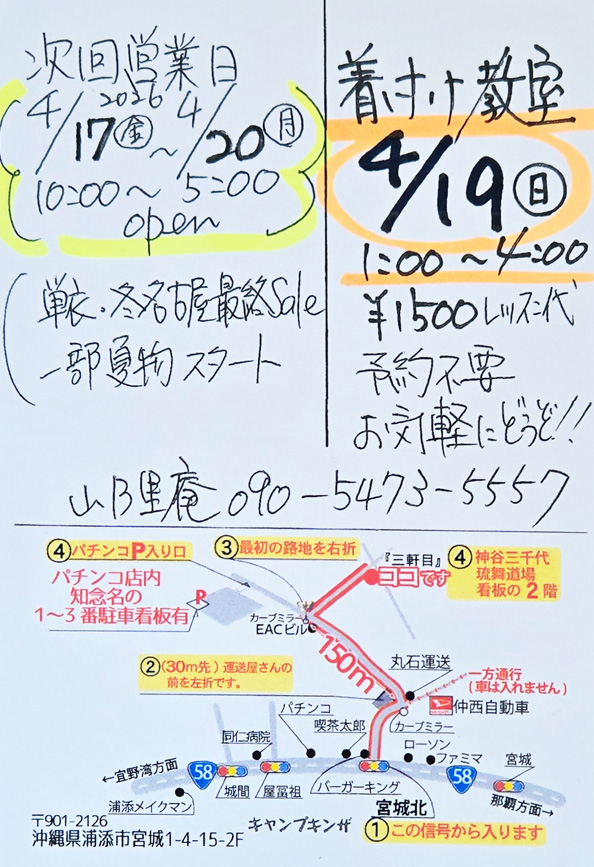 次回営業日
2026
4/17㊎～4/20㊊
10:00～5:00
open
単衣・冬名古屋最終Sale
一部夏物スタート
着付け教室
4/19㊐
1:00～4:00
¥1500レッスン代
予約不要
お気軽にどうぞ!!
090-5473-5557
④パチンコP入り口
パチンコ店内
知念名の
1～3番駐車看板有
P
③最初の路地を右折
『三軒目』
ココです
④神谷三千代
琉舞道場
看板の2階
カーブミラー
EACビル
150m
②(30m先)運送屋さんの
前を左折です。
丸石運送
一方通行
(車は入れません)
仲西自動車
カーブミラー
パチンコ
喫茶太郎
同仁病院
ローソン
ファミマ
宮城
←宜野湾方面
58
城間
屋富祖
バーガーキング
58
那覇方面→
浦添メイクマン
宮城北
キャンプキンザー
①この信号から入ります
〒901-2126
沖縄県浦添市宮城1-4-15-2F